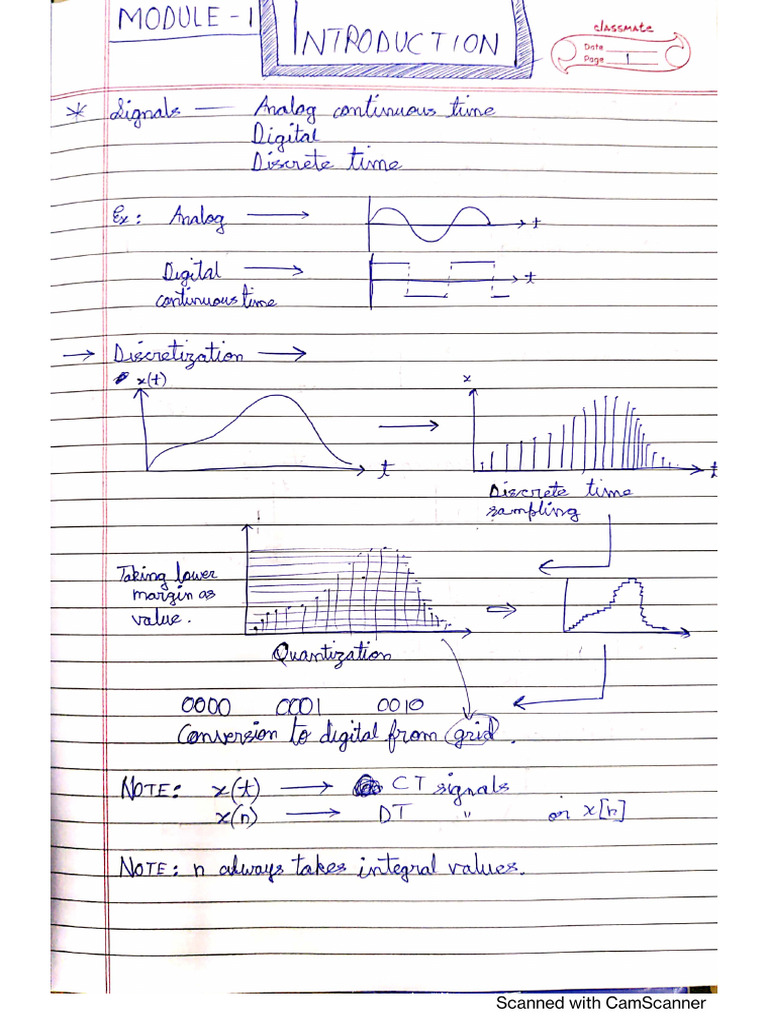 MODULE - 1
INTRODUCTION
classmate
Date
Page 1
* Signals — Analog continuous time
Digital
Discrete time
Ex: Analog → t
Digital → t
continuous time
→ Discretization →
x(t) x
→ t t
Discrete time
sampling
Taking lower
margin as
value.
Quantization
0000 0001 0010
Conversion to digital from grid.
NOTE: x(t) → CT signals
x(n) → DT " or x[n]
NOTE: n always takes integral values.
Scanned with CamScanner